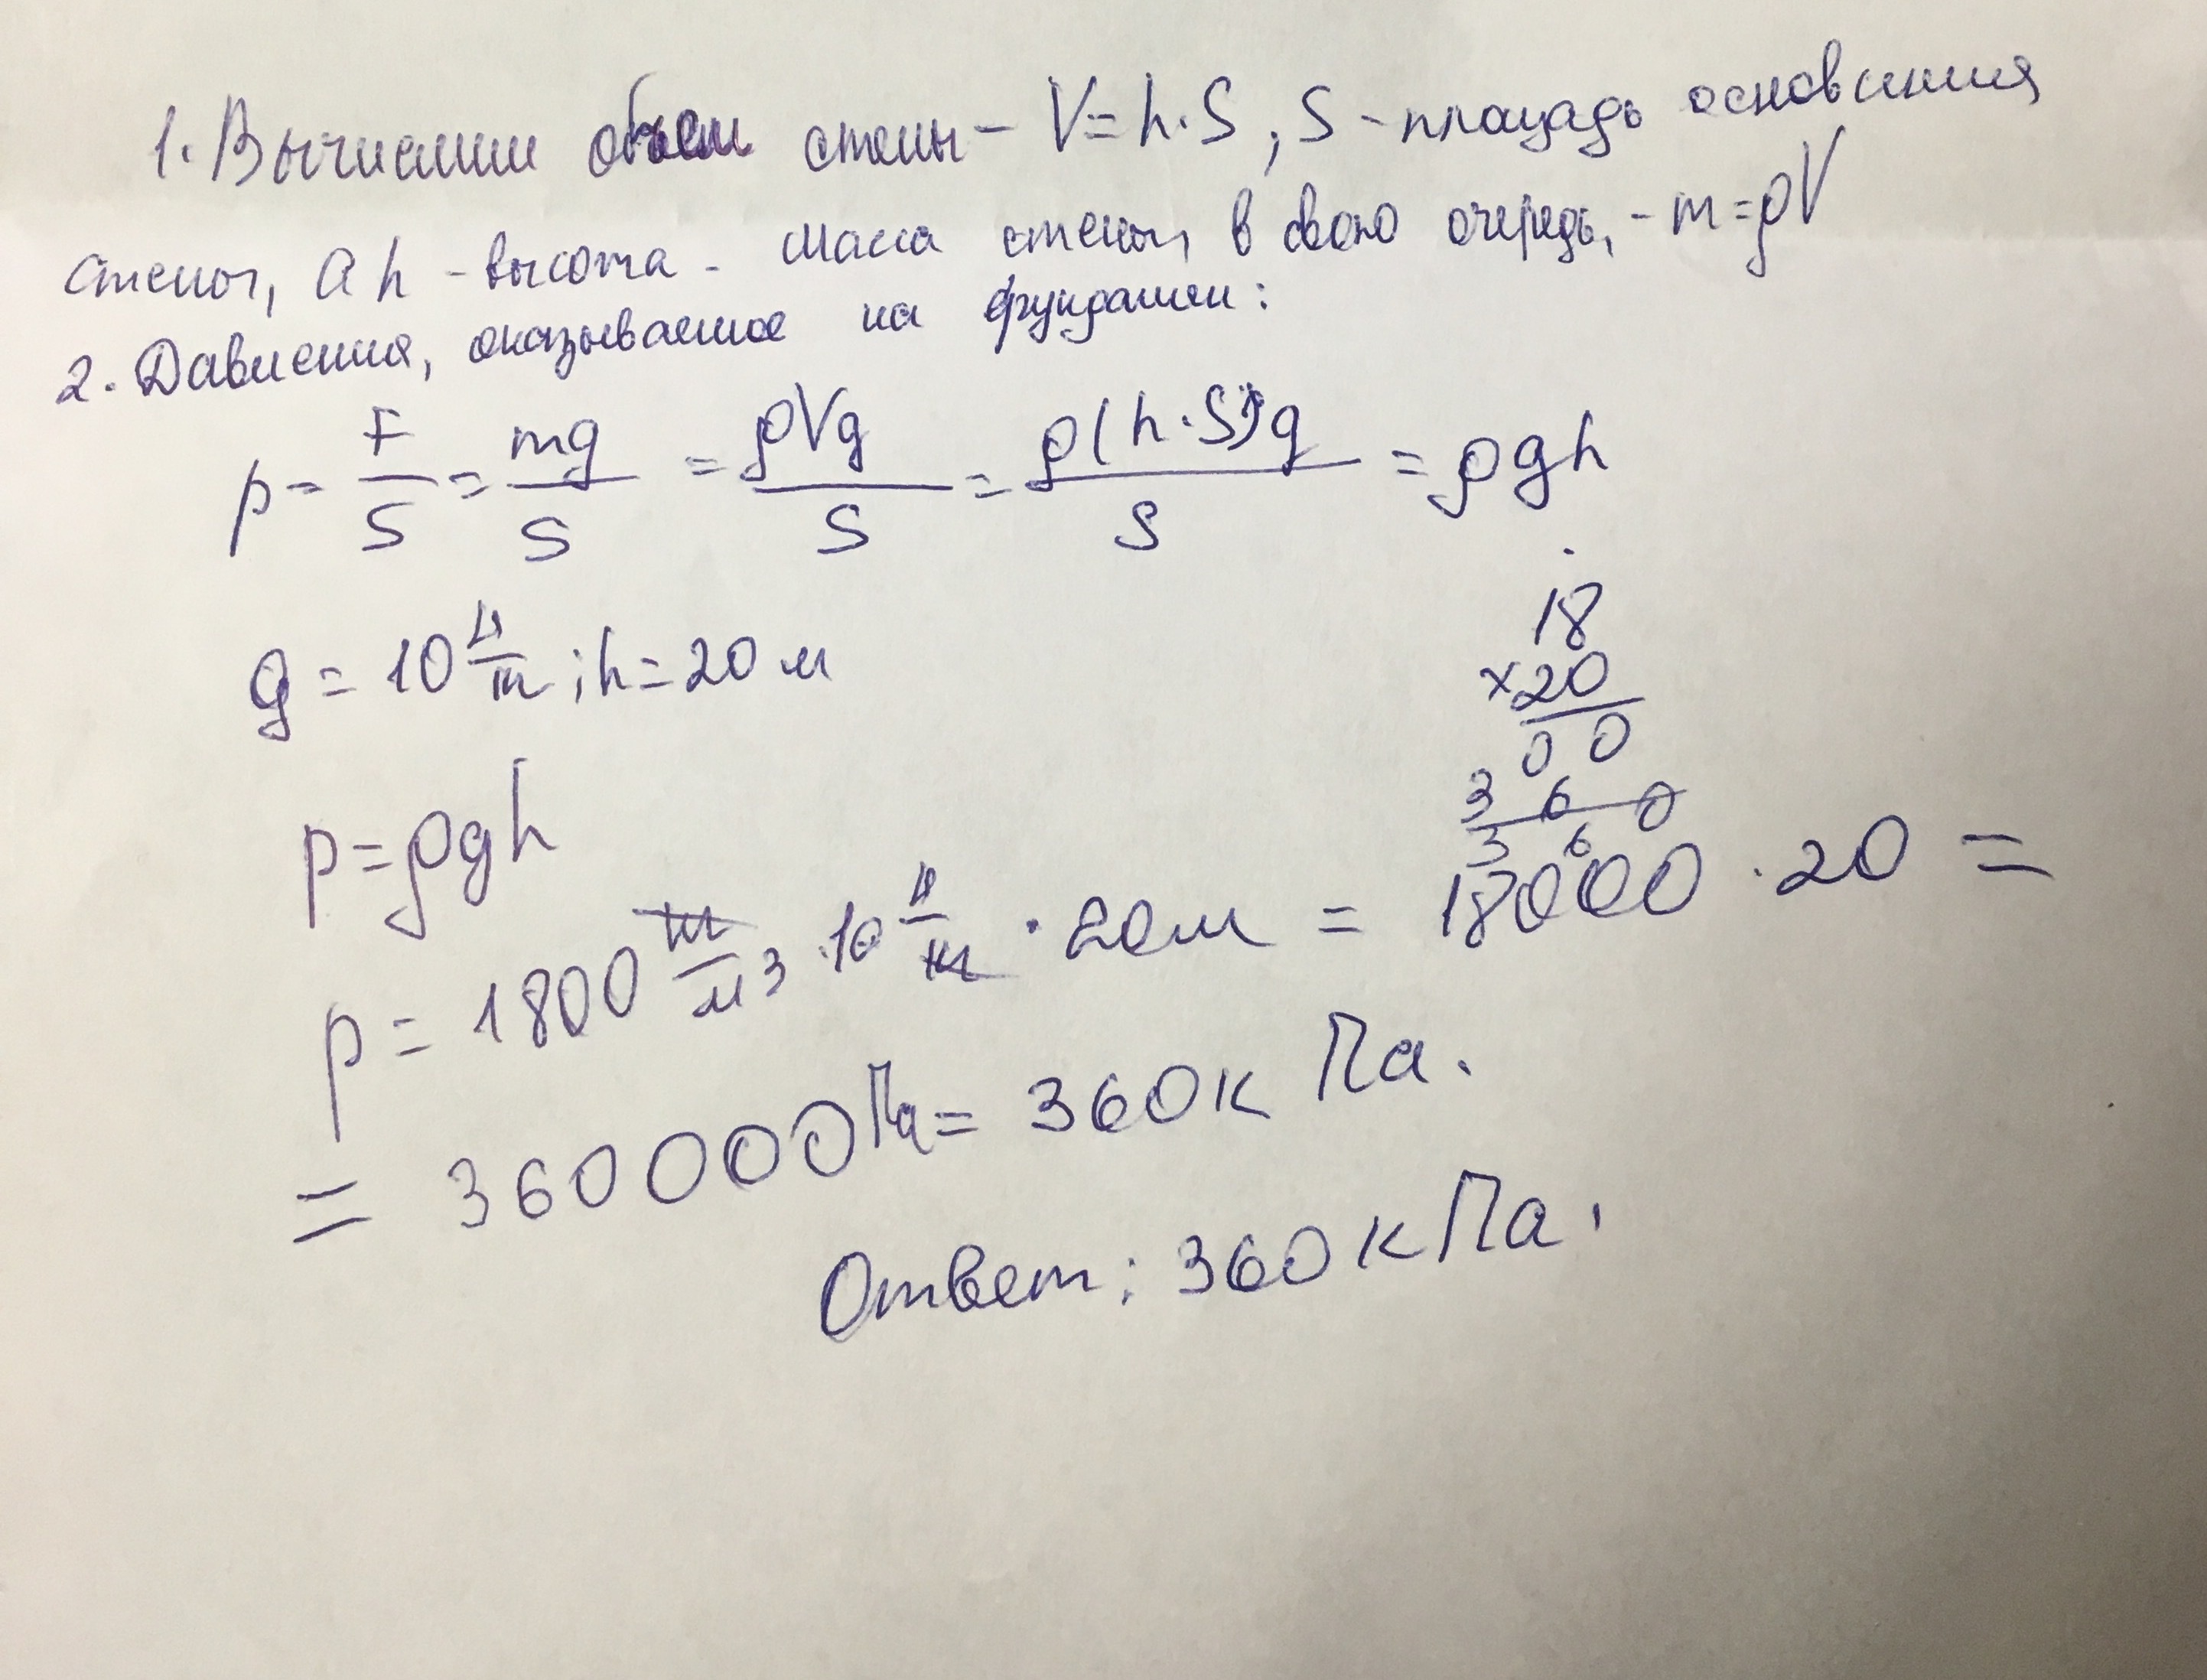 1. Вычислим объем стены – V=h·S, S – площадь основания
стены, а h – высота. Масса стены, в свою очередь, – m=ρV
2. Давления, оказываемое на фундамен:
p = F/S = mg/S = ρVg/S = ρ(h·S)g/S = ρgh
g = 10 Н/кг ; h = 20 м
18
×20
00
360
36
p = ρgh
p = 1800 кг/м3 · 10 Н/кг · 20м = 18000 · 20 =
= 360000Па = 360кПа.
Ответ: 360кПа.